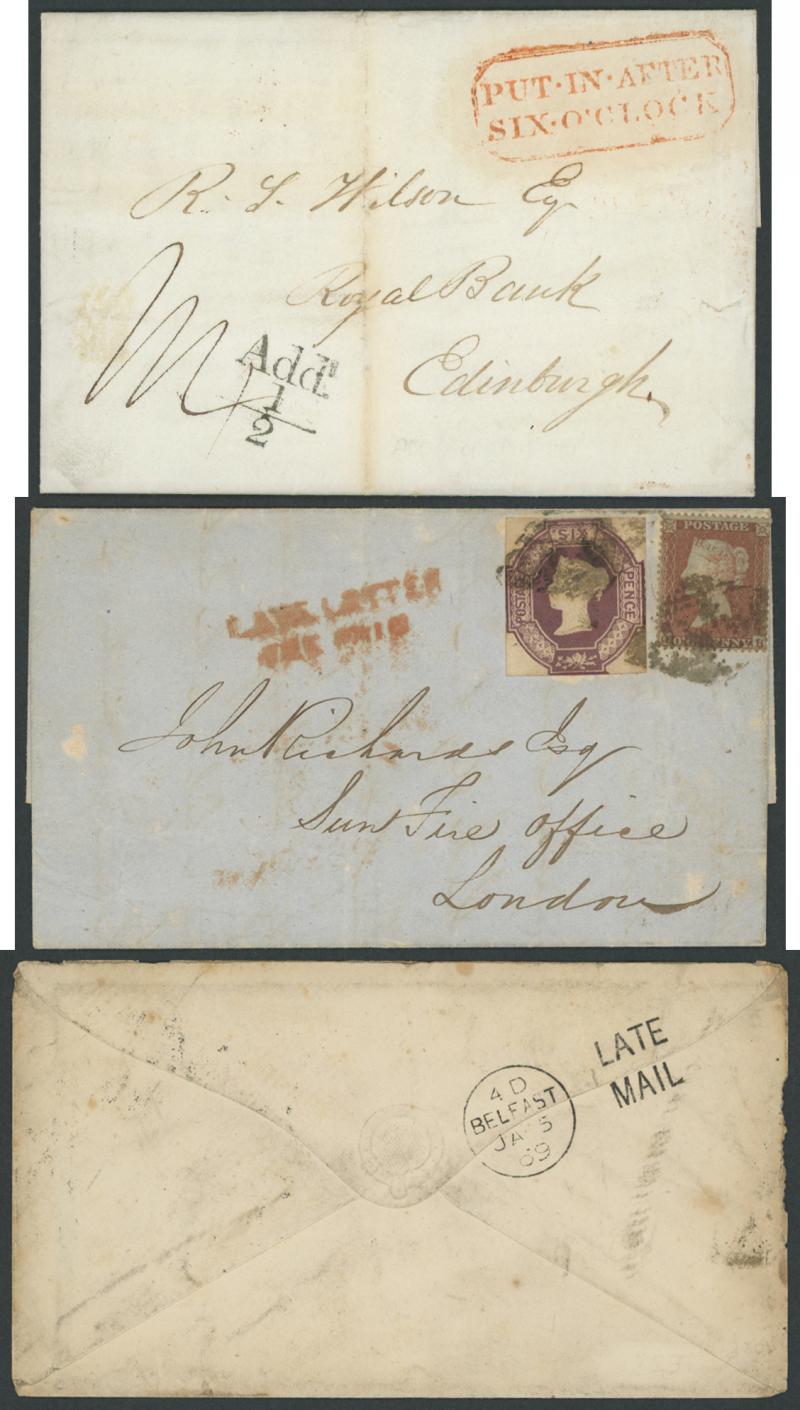 PUT·IN·AFTER
SIX·O'CLOCK
R. S. Wilson Esq
Royal Bank
Edinburgh.
Add!
1
2
SIX
POSTAGE
PENCE
POSTAGE
LATE LETTER
John Richards Esq
Sun Fire Office
London
LATE
MAIL
4 D
BELFAST
JA 5
69